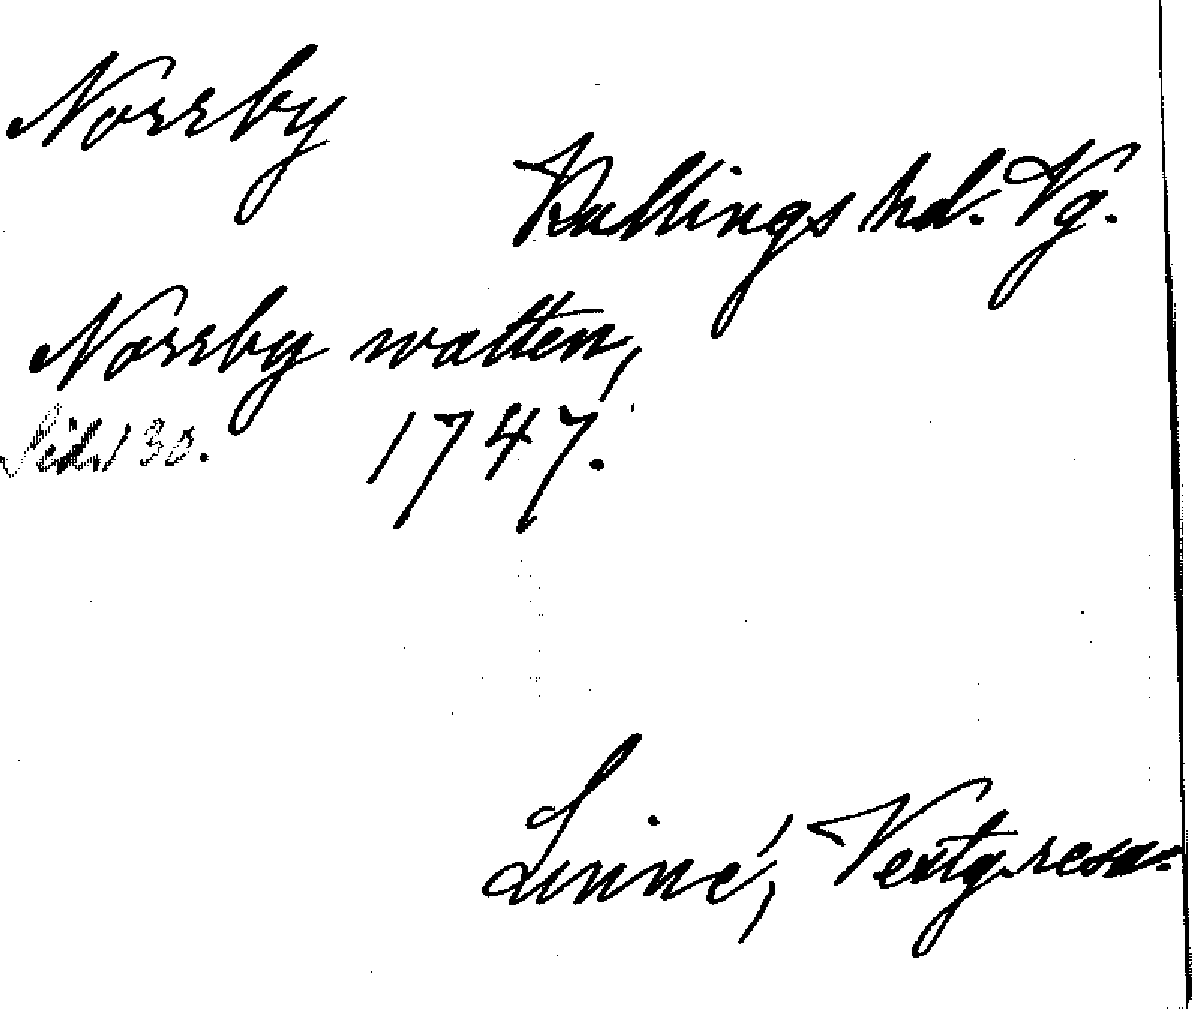 Norrby
Kullings hd. Vg.
Norrby watten,
Sid. 130. 1747.
Linné, Vestg. resa.